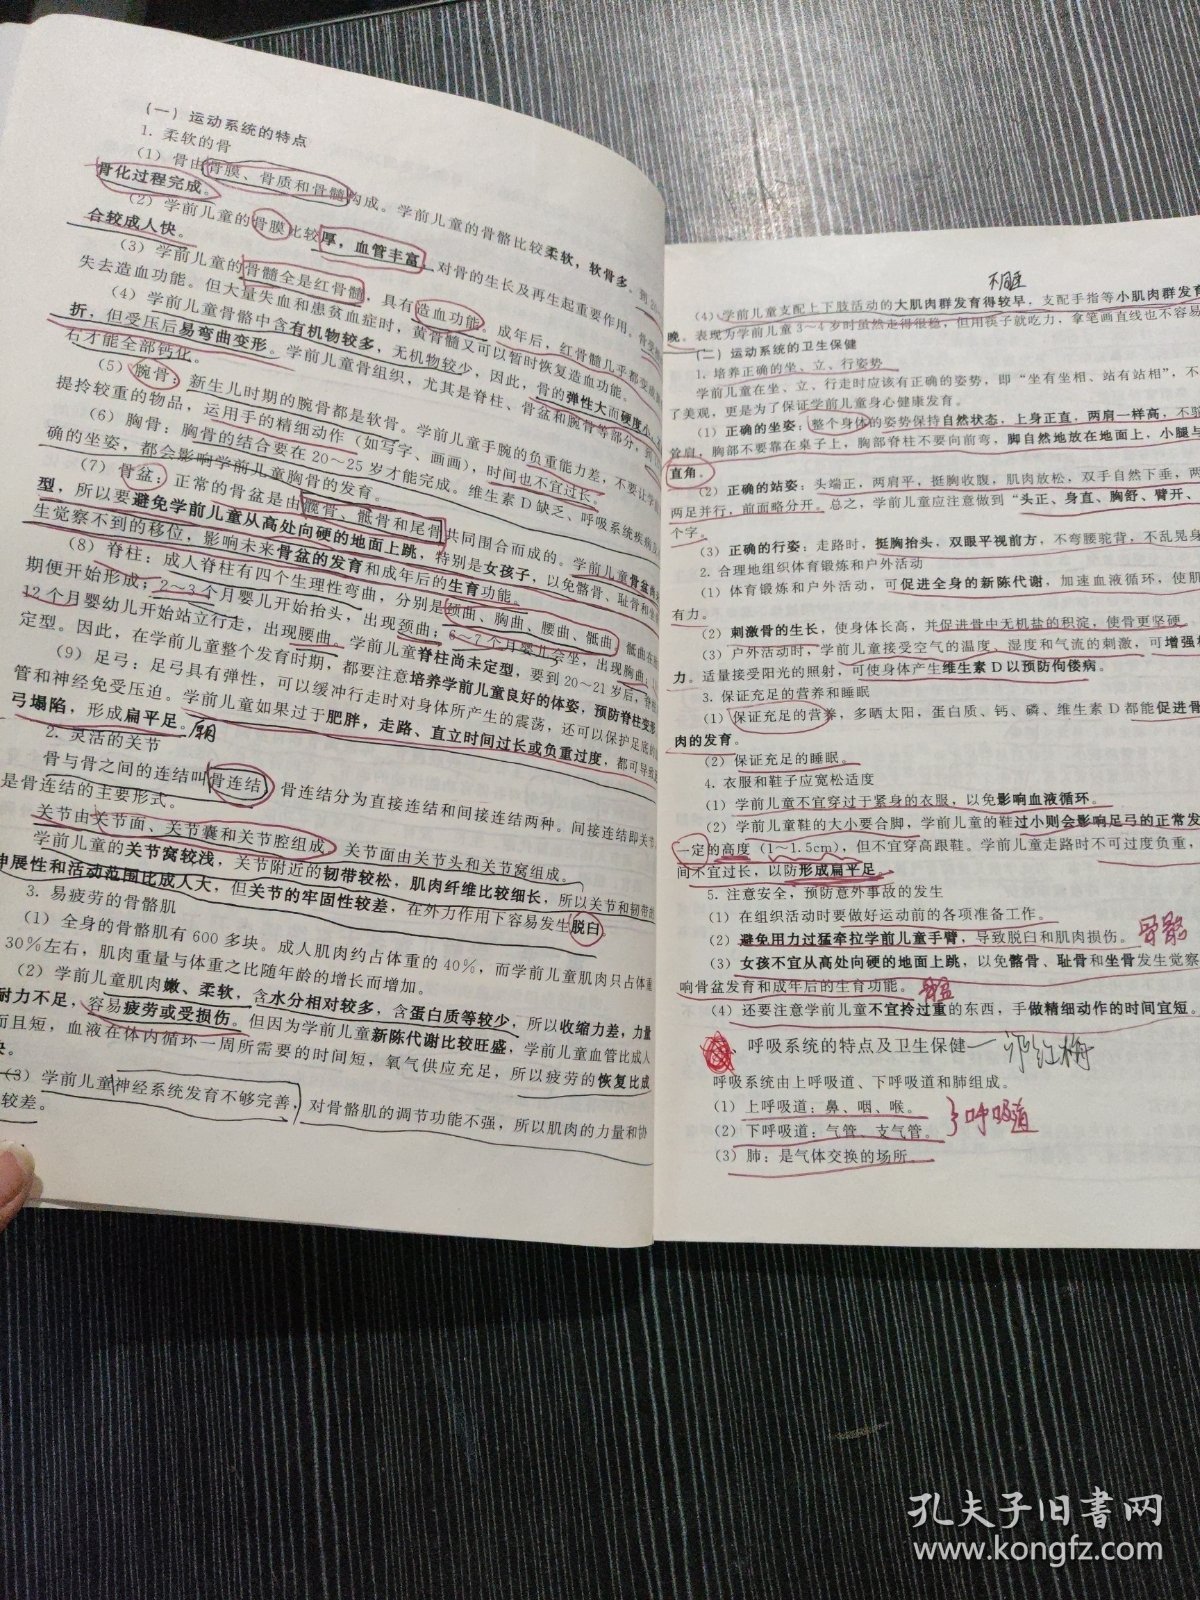 （一）运动系统的特点
1. 柔软的骨
（1）骨由骨膜、骨质和骨髓构成。学前儿童的骨骼比较柔软，软骨多，到 2
骨化过程完成。
（2）学前儿童的骨膜比较厚，血管丰富，对骨的生长及再生起重要作用。骨受
合较成人快。
（3）学前儿童的骨髓全是红骨髓，具有造血功能。成年后，红骨髓几乎都变成
失去造血功能。但大量失血和患贫血症时，黄骨髓又可以暂时恢复造血功能。
（4）学前儿童骨骼中含有机物较多，无机物较少，因此，骨的弹性大而硬度小，
折，但受压后易弯曲变形。学前儿童骨组织，尤其是脊柱、骨盆和腕骨等部分，到
右才能全部钙化。
（5）腕骨：新生儿时期的腕骨都是软骨。学前儿童手腕的负重能力差，不要让学
提拎较重的物品，运用手的精细动作（如写字、画画），时间也不宜过长。
（6）胸骨：胸骨的结合要在 20～25 岁才能完成。维生素 D 缺乏、呼吸系统疾病
确的坐姿，都会影响学前儿童胸骨的发育。
（7）骨盆：正常的骨盆是由髋骨、骶骨和尾骨共同围合而成的。学前儿童骨盆
型，所以要避免学前儿童从高处向硬的地面上跳，特别是女孩子，以免髂骨、耻骨和坐
生觉察不到的移位，影响未来骨盆的发育和成年后的生育功能。
（8）脊柱：成人脊柱有四个生理性弯曲，分别是颈曲、胸曲、腰曲、骶曲。骶曲在
期便开始形成；2～3 个月婴儿开始抬头，出现颈曲；6～7 个月婴儿会坐，出现胸曲；
12 个月婴幼儿开始站立行走，出现腰曲。学前儿童脊柱尚未定型，要到 20～21 岁后，脊
定型。因此，在学前儿童整个发育时期，都要注意培养学前儿童良好的体姿，预防脊柱变形
（9）足弓：足弓具有弹性，可以缓冲行走时对身体所产生的震荡，还可以保护足底的
管和神经免受压迫。学前儿童如果过于肥胖，走路、直立时间过长或负重过度，都可导致
弓塌陷，形成扁平足。
2. 灵活的关节
骨与骨之间的连结叫骨连结。骨连结分为直接连结和间接连结两种。间接连结即关节，
是骨连结的主要形式。
关节由关节面、关节囊和关节腔组成。关节面由关节头和关节窝组成。
学前儿童的关节窝较浅，关节附近的韧带较松，肌肉纤维比较细长，所以关节和韧带的
伸展性和活动范围比成人大，但关节的牢固性较差，在外力作用下容易发生脱臼。
3. 易疲劳的骨骼肌
（1）全身的骨骼肌有 600 多块。成人肌肉约占体重的 40%，而学前儿童肌肉只占体重
30%左右，肌肉重量与体重之比随年龄的增长而增加。
（2）学前儿童肌肉嫩、柔软，含水分相对较多，含蛋白质等较少，所以收缩力差，力量
耐力不足，容易疲劳或受损伤。但因为学前儿童新陈代谢比较旺盛，学前儿童血管比成人
而且短，血液在体内循环一周所需要的时间短，氧气供应充足，所以疲劳的恢复比成
快。
（3）学前儿童神经系统发育不够完善，对骨骼肌的调节功能不强，所以肌肉的力量和协
较差。
（4）学前儿童支配上下肢活动的大肌肉群发育得较早，支配手指等小肌肉群发育
晚。表现为学前儿童 3～4 岁时虽然走得很稳，但用筷子就吃力，拿笔画直线也不容易
（二）运动系统的卫生保健
1. 培养正确的坐、立、行姿势
学前儿童在坐、立、行走时应该有正确的姿势，即“坐有坐相、站有站相”，不
了美观，更是为了保证学前儿童身心健康发育。
（1）正确的坐姿：整个身体的姿势保持自然状态，上身正直，两肩一样高，不
耸肩，胸部不要靠在桌子上，胸部脊柱不要向前弯，脚自然地放在地面上，小腿与
直角。
（2）正确的站姿：头端正，两肩平，挺胸收腹，肌肉放松，双手自然下垂，两
两足并行，前面略分开。总之，学前儿童应注意做到“头正、身直、胸舒、臂开、
个字。
（3）正确的行姿：走路时，挺胸抬头，双眼平视前方，不弯腰驼背，不乱晃身
2. 合理地组织体育锻炼和户外活动
（1）体育锻炼和户外活动，可促进全身的新陈代谢，加速血液循环，使肌
有力。
（2）刺激骨的生长，使身体长高，并促进骨中无机盐的积淀，使骨更坚硬
（3）户外活动时，学前儿童接受空气的温度、湿度和气流的刺激，可增强
力。适量接受阳光的照射，可使身体产生维生素 D 以预防佝偻病。
3. 保证充足的营养和睡眠
（1）保证充足的营养，多晒太阳，蛋白质、钙、磷、维生素 D 都能促进骨
肉的发育。
（2）保证充足的睡眠。
4. 衣服和鞋子应宽松适度
（1）学前儿童不宜穿过于紧身的衣服，以免影响血液循环。
（2）学前儿童鞋的大小要合脚，学前儿童的鞋过小则会影响足弓的正常发
一定的高度（1～1.5cm），但不宜穿高跟鞋。学前儿童走路时不可过度负重，
间不宜过长，以防形成扁平足。
5. 注意安全，预防意外事故的发生
（1）在组织活动时要做好运动前的各项准备工作。
（2）避免用力过猛牵拉学前儿童手臂，导致脱臼和肌肉损伤。
（3）女孩不宜从高处向硬的地面上跳，以免髂骨、耻骨和坐骨发生觉察
响骨盆发育和成年后的生育功能。骨盆
（4）还要注意学前儿童不宜拎过重的东西，手做精细动作的时间宜短。
呼吸系统的特点及卫生保健
呼吸系统由上呼吸道、下呼吸道和肺组成。
（1）上呼吸道：鼻、咽、喉。
（2）下呼吸道：气管、支气管。
呼吸道
（3）肺：是气体交换的场所。
孔夫子旧书网
www.kongfz.com